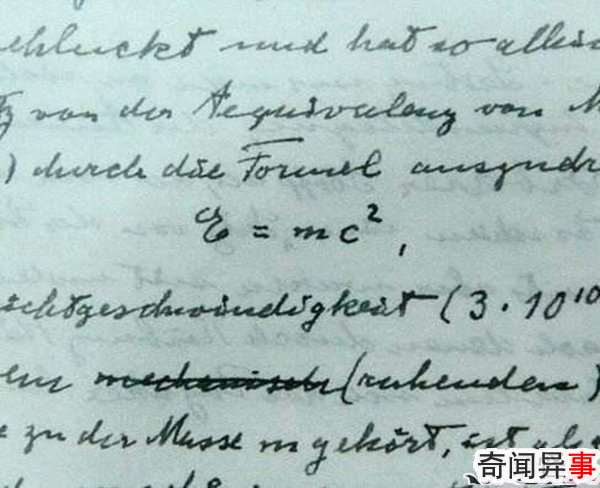 schluckt und hat so allein
tz von der Aequivalenz von M
) durch die Formel auszudr
E = mc²,
ichtgeschwindigkeit (3 · 10¹⁰
em mechanisch (ruhenden)
e zu der Masse m gehört, ist als
奇闻异事